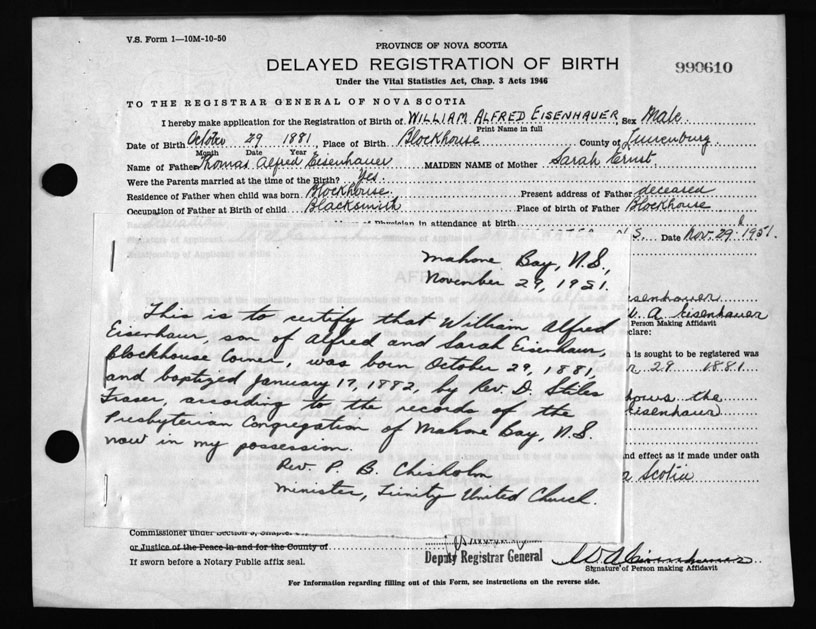 V.S. Form 1—10M-10-50
PROVINCE OF NOVA SCOTIA
DELAYED REGISTRATION OF BIRTH
990610
Under the Vital Statistics Act, Chap. 3 Acts 1946
TO THE REGISTRAR GENERAL OF NOVA SCOTIA
I hereby make application for the Registration of Birth of WILLIAM ALFRED EISENHAUER, Sex Male
Print Name in full
Date of Birth October 29 1881 Place of Birth Blockhouse County of Lunenburg
Month Date Year
Name of Father Thomas Alfred Eisenhauer MAIDEN NAME of Mother Sarah Ernst
Were the Parents married at the time of the Birth? Yes.
Residence of Father when child was born Blockhouse Present address of Father deceased
Occupation of Father at Birth of child Blacksmith Place of birth of Father Blockhouse
Physician in attendance at birth
N.S. Date Nov. 29. 1951.
Mahone Bay, N.S.,
November 29, 1951.
This is to certify that William Alfred
Eisenhaur, son of Alfred and Sarah Eisenhaur,
Blockhouse Corner, was born October 29, 1881,
and baptized January 17, 1882, by Rev. D. Stiles
Fraser, according to the records of the
Presbyterian Congregation of Mahone Bay, N.S.
now in my possession.
Rev. P. B. Chisholm
Minister, Trinity United Church.
Eisenhauer
W. A. Eisenhauer
Person Making Affidavit
clare:
h is sought to be registered was
29 1881
knows the
Eisenhauer
nd effect as if made under oath
Scotia
Commissioner under Section
or Justice of the Peace in and for the County of
If sworn before a Notary Public affix seal.
Deputy Registrar General
W A Eisenhauer
Signature of Person making Affidavit
For Information regarding filling out of this Form, see instructions on the reverse side.